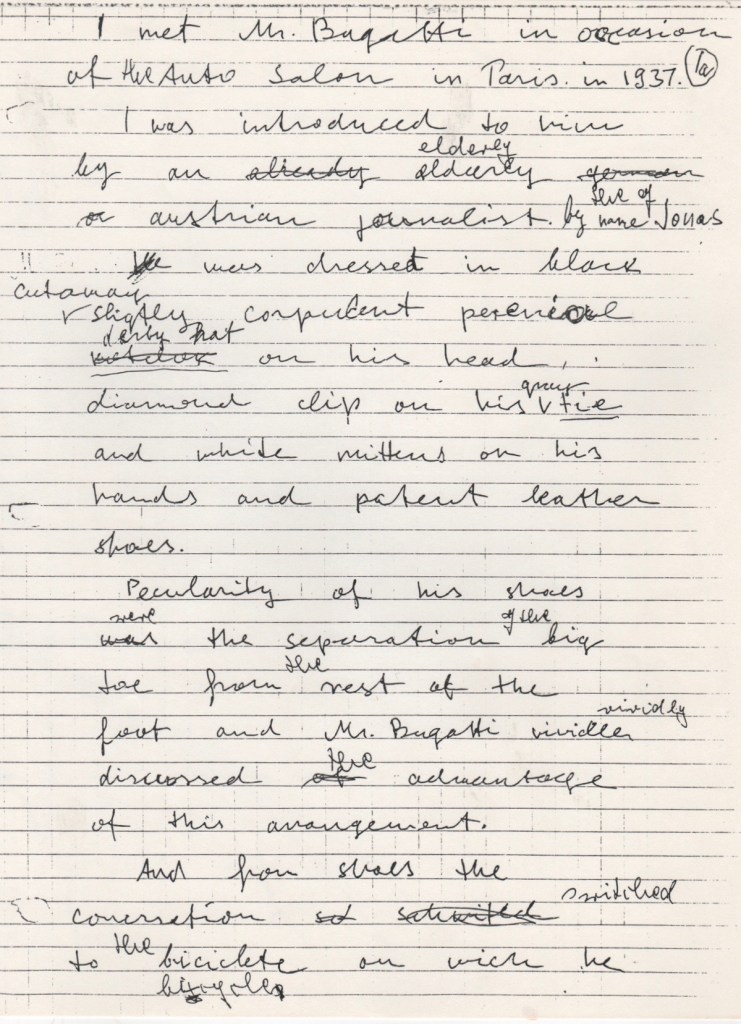 I met Mr. Bugatti in occasion
of the Auto Salon in Paris. in 1937.
I was introduced to him
elderly
by an already elderly german
or austrian journalist. by the name of Jonas
He was dressed in black
cutaway
slightly corpulent
derby hat
on his head,
gray
diamond clip on his tie
and white mittens on his
hands and patent leather
shoes.
Pecularity of his shoes
were of the
was the separation big
the
toe from rest of the
vividly
foot and Mr. Bugatti
the
discussed of advantage
of this arangement.
And from shoes the
switched
conversation
the
to biciclete on wich he
bicycle